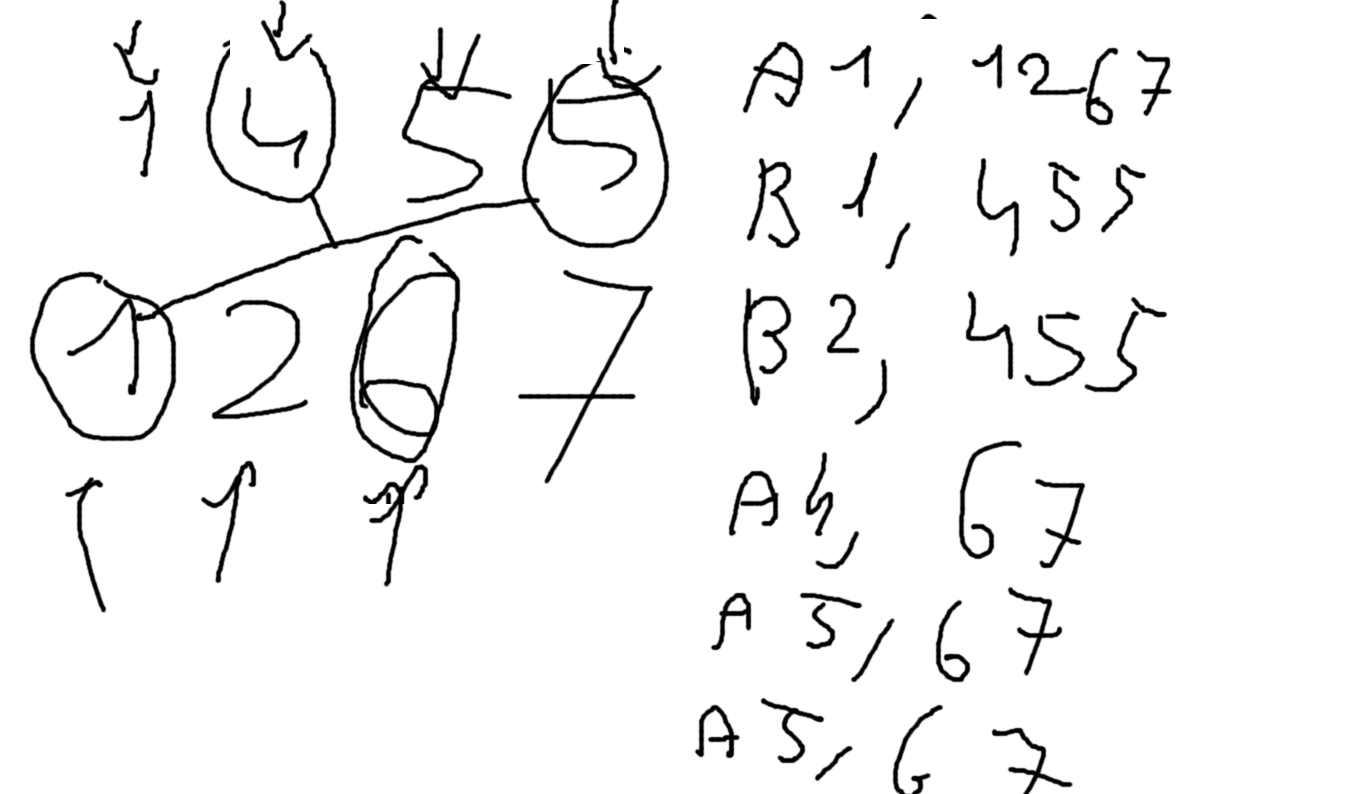 1 4 5 5
1 2 6 7
A 1, 1267
B 1, 455
B 2, 455
A 4, 67
A 5, 67
A 5, 67